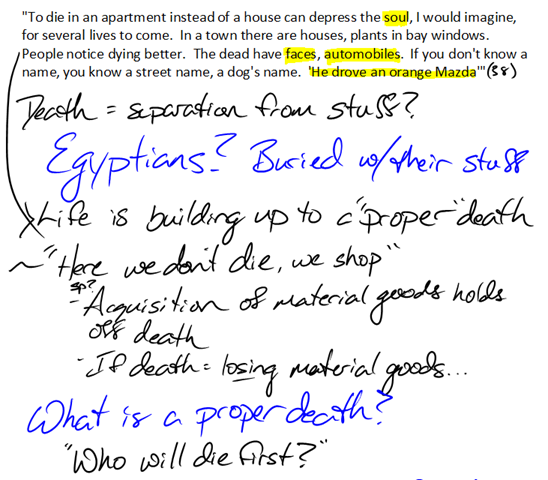 "To die in an apartment instead of a house can depress the soul, I would imagine,
for several lives to come.  In a town there are houses, plants in bay windows.
People notice dying better.  The dead have faces, automobiles.  If you don't know a
name, you know a street name, a dog's name.  'He drove an orange Mazda'" (38)
Death = separation from stuff?
Egyptians? Buried w/their stuff
Life is building up to a "proper" death
~ "Here we don't die, we shop"
sp?
- Acquisition of material goods holds
off death
- If death = losing material goods...
What is a proper death?
"Who will die first?"